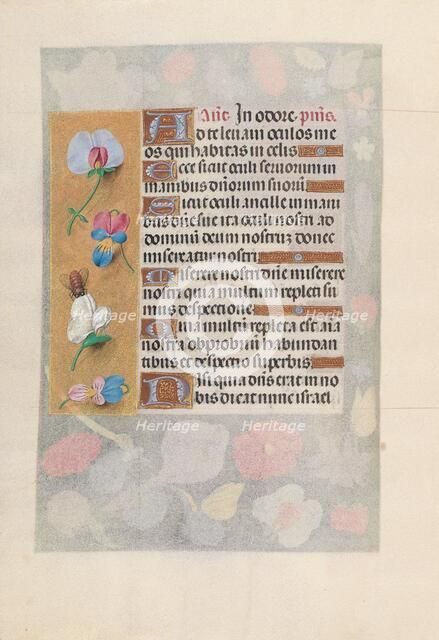 Ant̃. In odore. p̃us.
Ad te levavi oculos me
os qui habitas in celis
Ecce sicut oculi servorum in
manibus dñorum suorũ
Sicut oculi ancille in mani
bus dñe sue ita oculi nostri ad
dominũ deum nostrũ donec
misereatur nostri
Miserere nostri dñe miserere
nostri quia multum repleti su
mus despectione
Quia multũ repleta est aĩa
nostra obprobriũ habundan
tibus et despectio superbis
Nisi quia dñs erat in no
bis dicat nunc israel
Heritage
Heritage
Heritage
Heritage
Heritage
Heritage